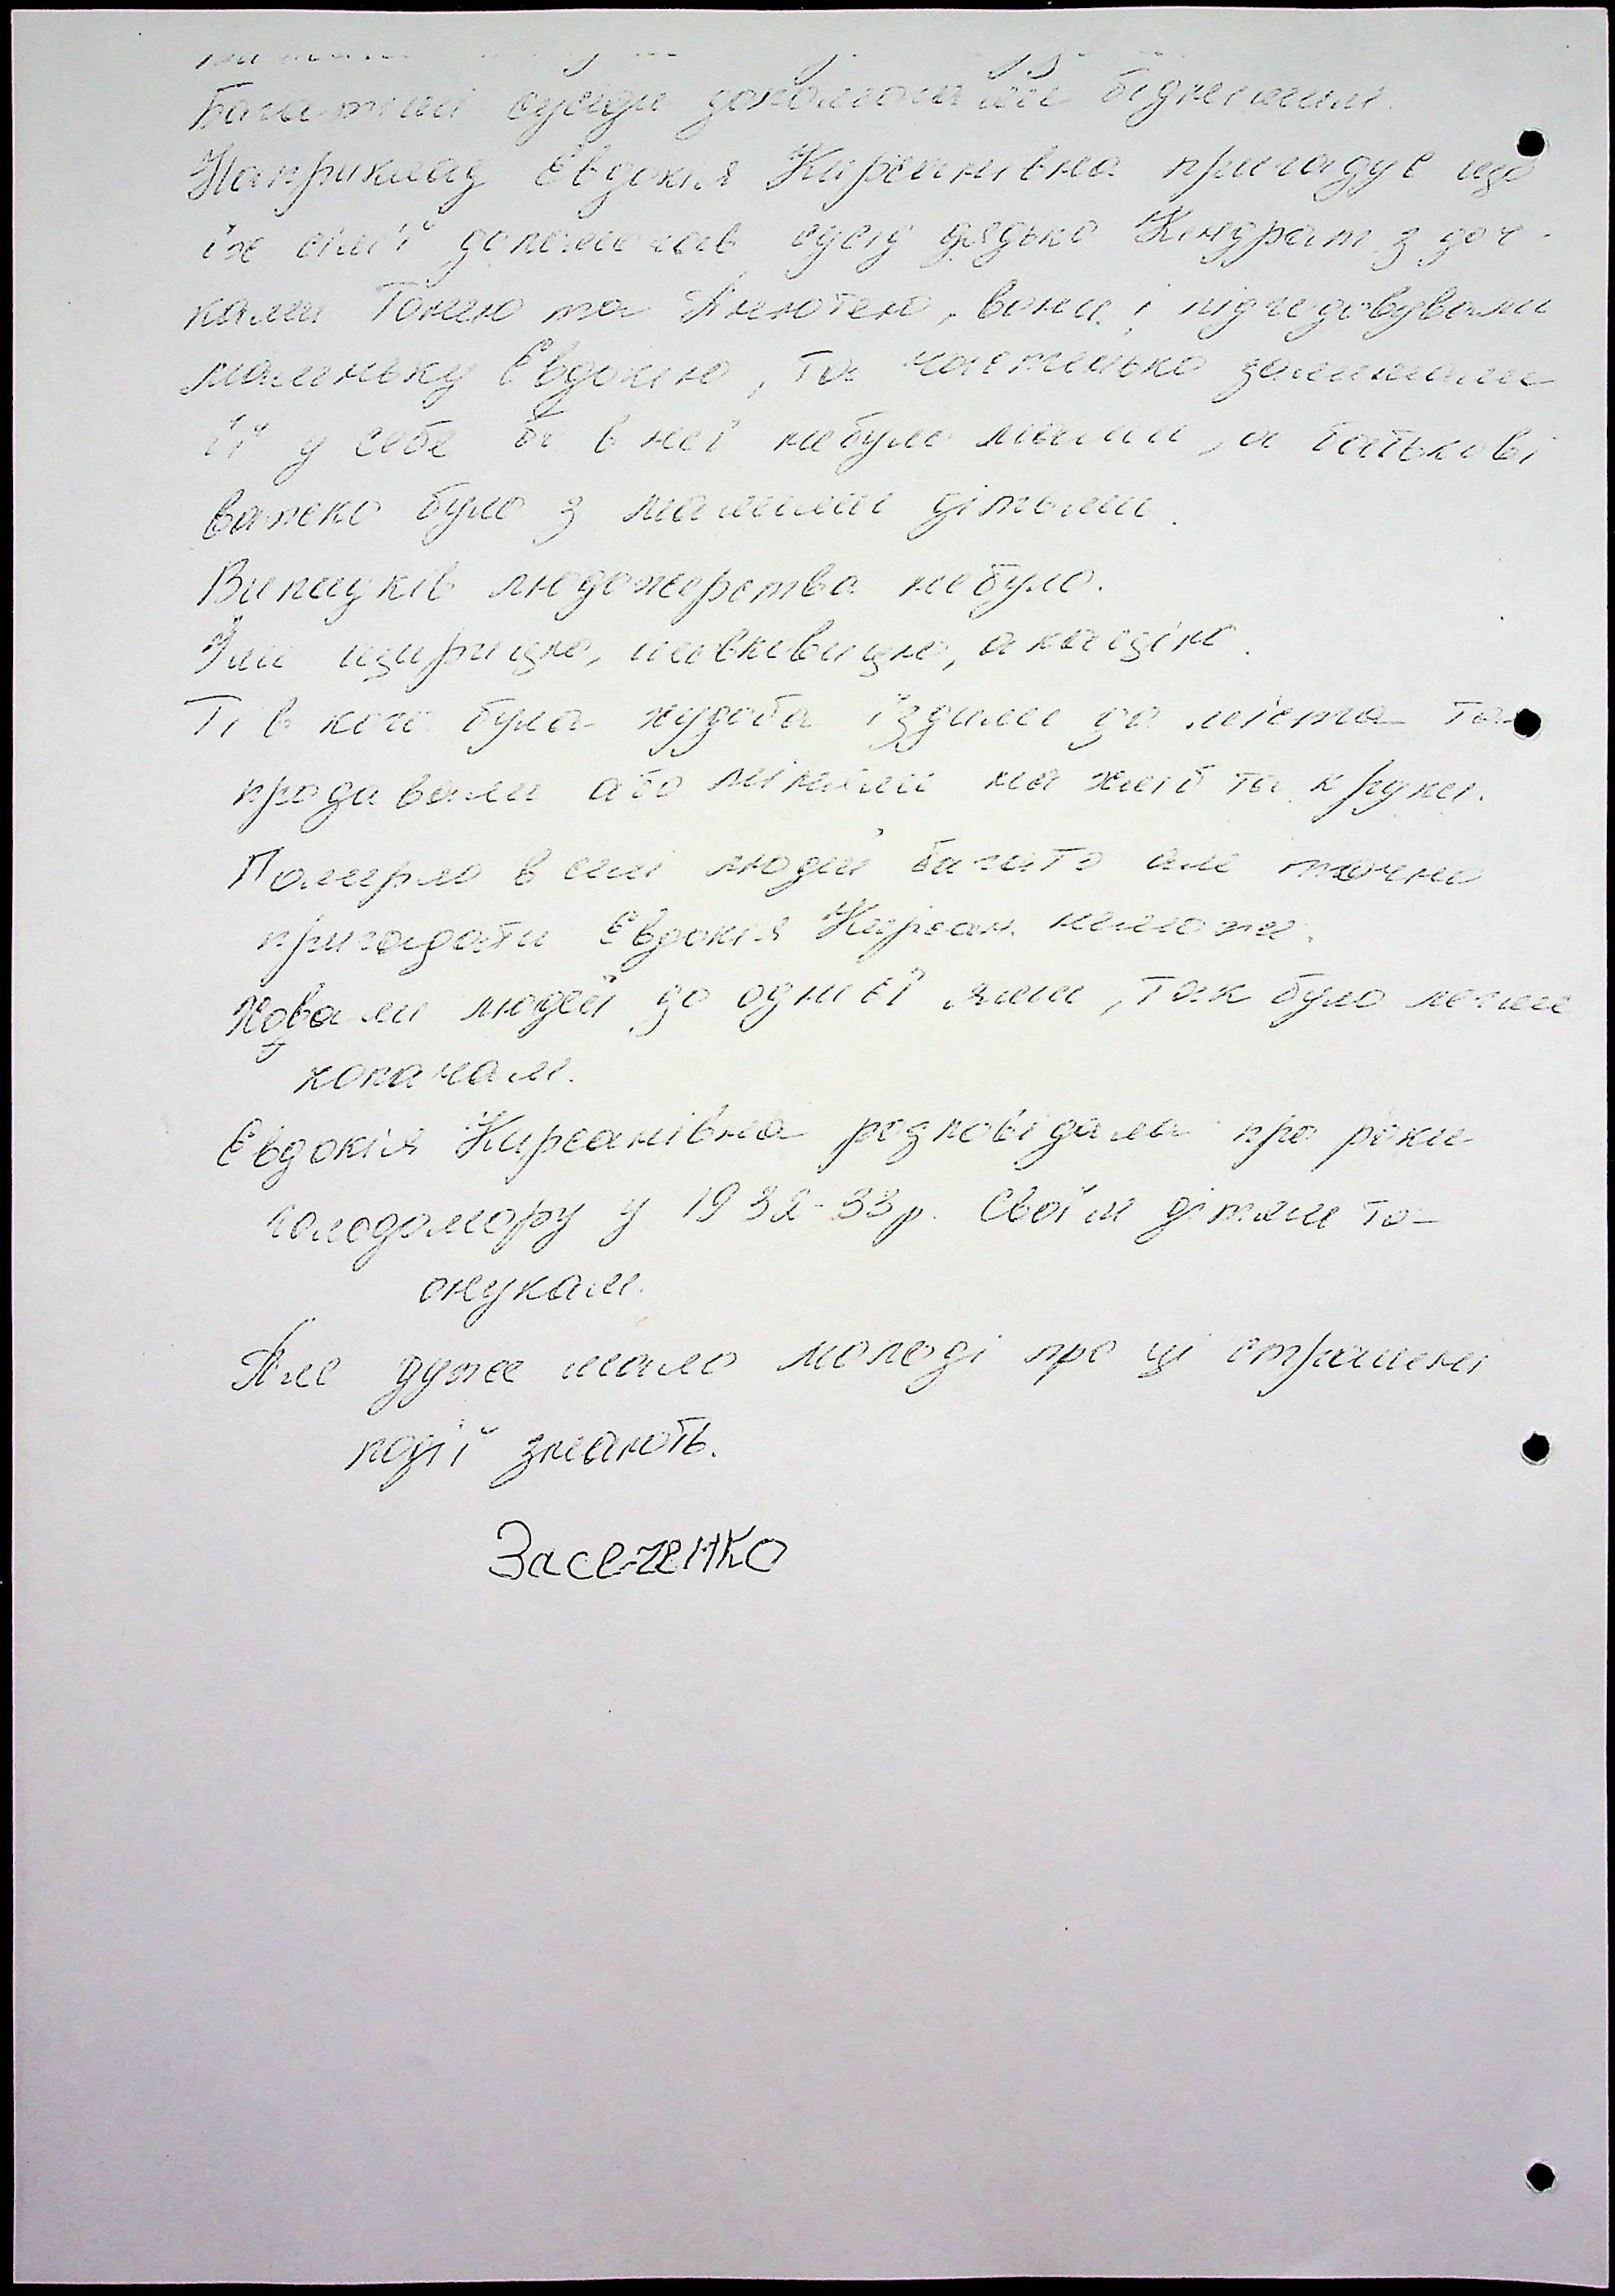 Багатші сусіди допомагали біднішим.
Наприклад Євдокія Кирсанівна пригадує що
їх сім'ї допомагав сусід дядько Кіндрат з доч-
ками Тонею та Анютею, вони і підгодовували
маленьку Євдокію, та частенько залишали
її у себе бо в неї небуло мами, а батькові
важко було з малими дітьми.
Випадків людожерства небуло.
Їли щирицю, шовковицю, акацію.
Ті в кого була худоба їздили до міста та
продавали або міняли на хліб та крупи.
Померло в селі людей багато але точно
пригадати Євдокія Кирсан. неможе.
Ховали людей до однієї ями, так було легше
копачам.
Євдокія Кирсанівна розповідала про роки
голодомору у 1932-33р. своїм дітям та
онукам.
Але дуже мало молоді про ці страшні
події знають.
Засенко